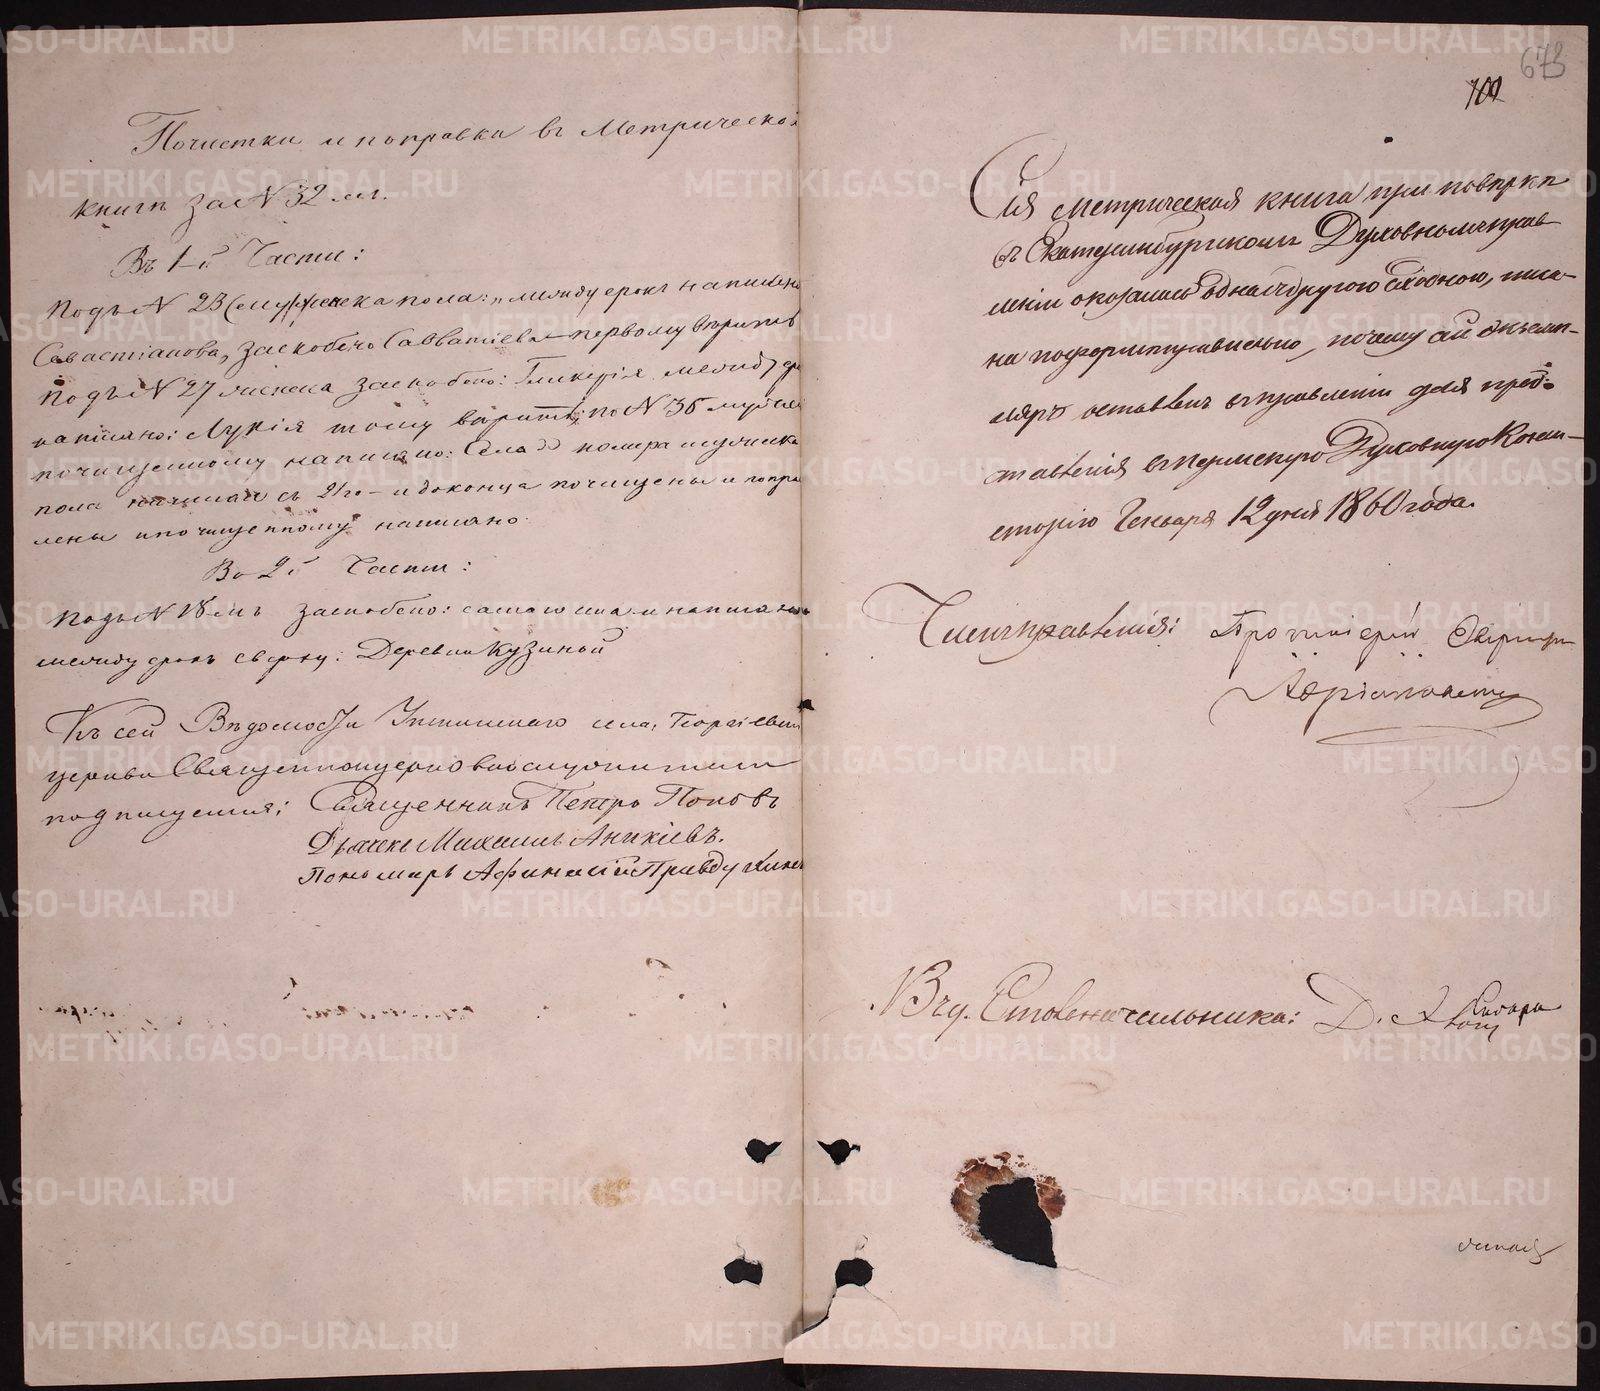 Почистки и поправки въ Метрической
книгѣ за № 32 мъ.
Въ 1-й Части:
Подъ № 23 (мужеска пола: между срокъ написано
Севастіанова, заскоблено Савватіева первому вѣрить
Подъ № 27 женска заскоблено: Гликерія между
написано: Лукія тому вѣрить; по № 36
почищенному написано: номера мужеска
пола начиная съ 21го и до конца почищены и поправ
лены и по чищенному написано.
Во 2й Части:
Подъ № 18 мъ заскоблено: и написано
между срокъ сверху: Деревни Кузиной
Къ сей Вѣдомости Уткинскаго села, Георгіевской
церкви Священноцерковнослужители
подписуемся: Священникъ Петръ Поповъ
Дьячекъ Михаилъ Аникіевъ.
Пономарь Афанасій Правдухинъ
673
Сія метрическая книга при повѣркѣ
въ Екатеринбургскомъ Духовномъ прав
леніи оказалась одна съ другою сходною, писа-
на по формѣ правильно, почему сей экземп-
ляръ оставленъ въ правленіи для пред-
ставленія въ Пермскую Духовную Конси-
сторію Генваря 12 дня 1860 года.
Членъ правленія: Протоіерей
В. д. Столоначальника: Д.
METRIKI.GASO-URAL.RU